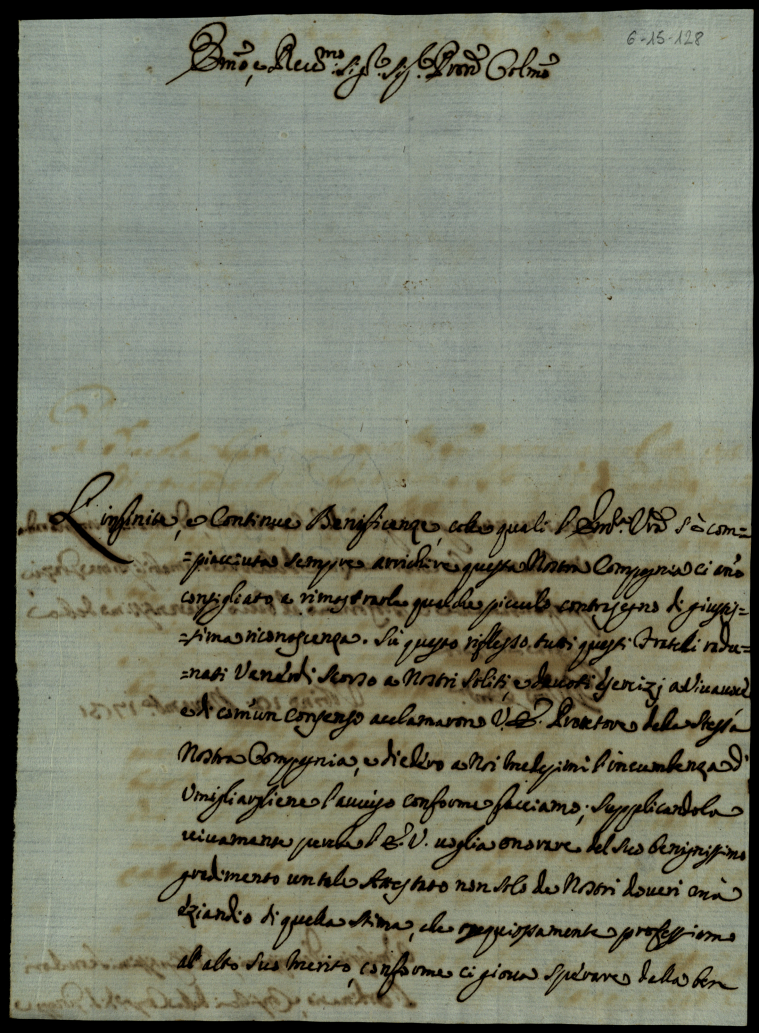 6-15-128
Emo, e Reumo. Sigr. Sigr. Prone Colmo
L'infinite, e Continue Beneficenze, cole quali l'Emza. Vra. s'è com=
=piacciuta sempre arrichire questa Nostra Compagnia ci ano
consigliato a rimostrarle qualche piccolo contrasegno di giustis=
=tima riconoscenza. Su questo riflesso tutti questi Fratelli radu=
=nati Venerdi scorso a Nostri soliti, e devoti Esercizj a viva voce
e di comun consenso acclamarono V. E. Protettore della stessa
Nostra Compagnia, e diedero a Noi medesimi l'incumbenza di
Umigliargliene l'auviso conforme facciamo; supplicandola
vivamente perchè l'E. V. voglia onorare del suo benignissimo
gradimento un tale Attestato non solo de Nostri doveri mà
eziandio di quella stima, che ossequiosamente professiamo
al'alto suo merito, conforme ci giova sperare della bene